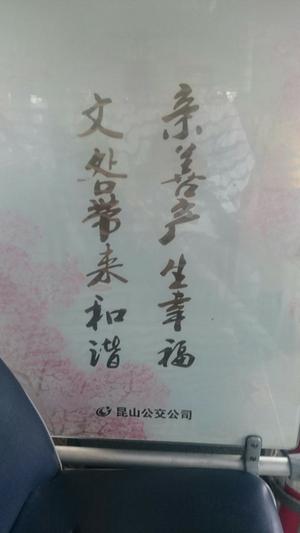 亲善产生幸福
文带来和谐
昆山公交公司